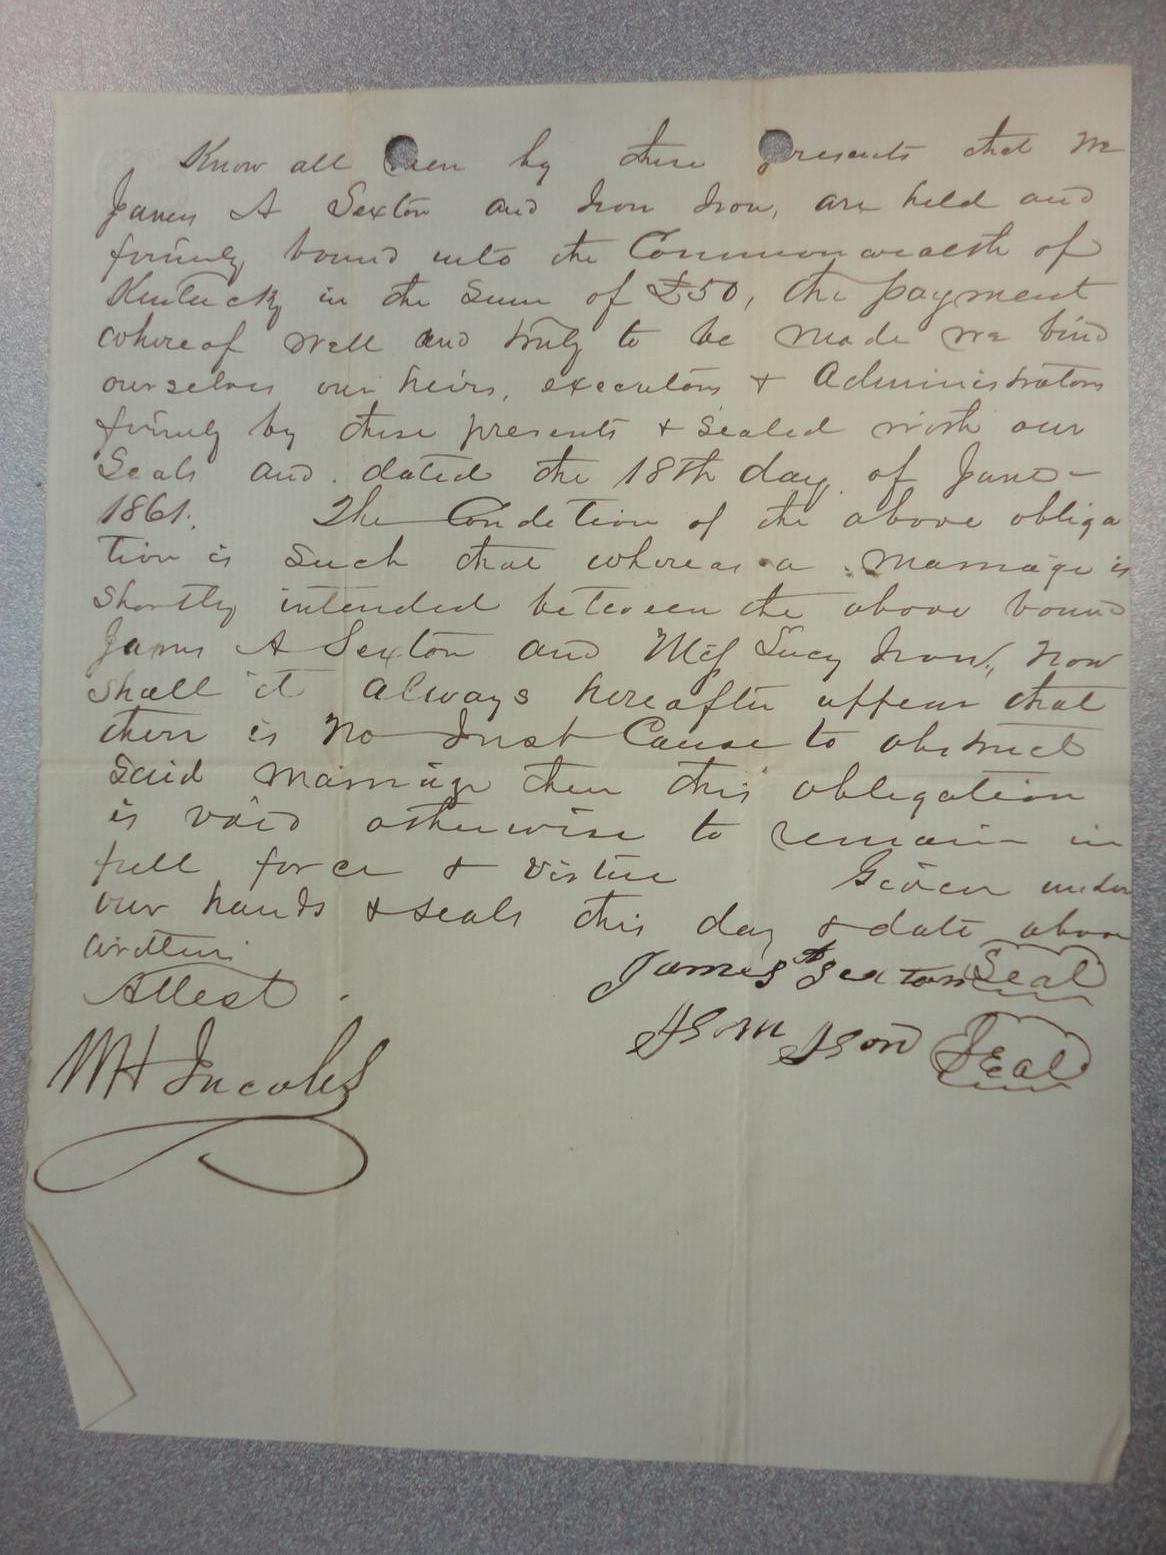 Know all men by these presents that we
James A Sexton and Isom Ison, are held and
firmly bound unto the Commonwealth of
Kentucky in the Sum of £50, the payment
whereof well and truly to be made we bind
ourselves our heirs, executors + Administrators
firmly by these presents + sealed with our
Seals and dated the 18th day of June -
1861. The Condition of the above obliga
tion is such that whereas a marriage is
shortly intended between the above bound
James A Sexton and Miss Lucy Ison, now
shall it always hereafter appear that
there is no Just Cause to obstruct
said marriage then this obligation
is void otherwise to remain in
full force + virtue Given under
our hands + seals this day + date above
written
Attest. James A Sexton Seal
Isom Ison Seal
WH Jacobs